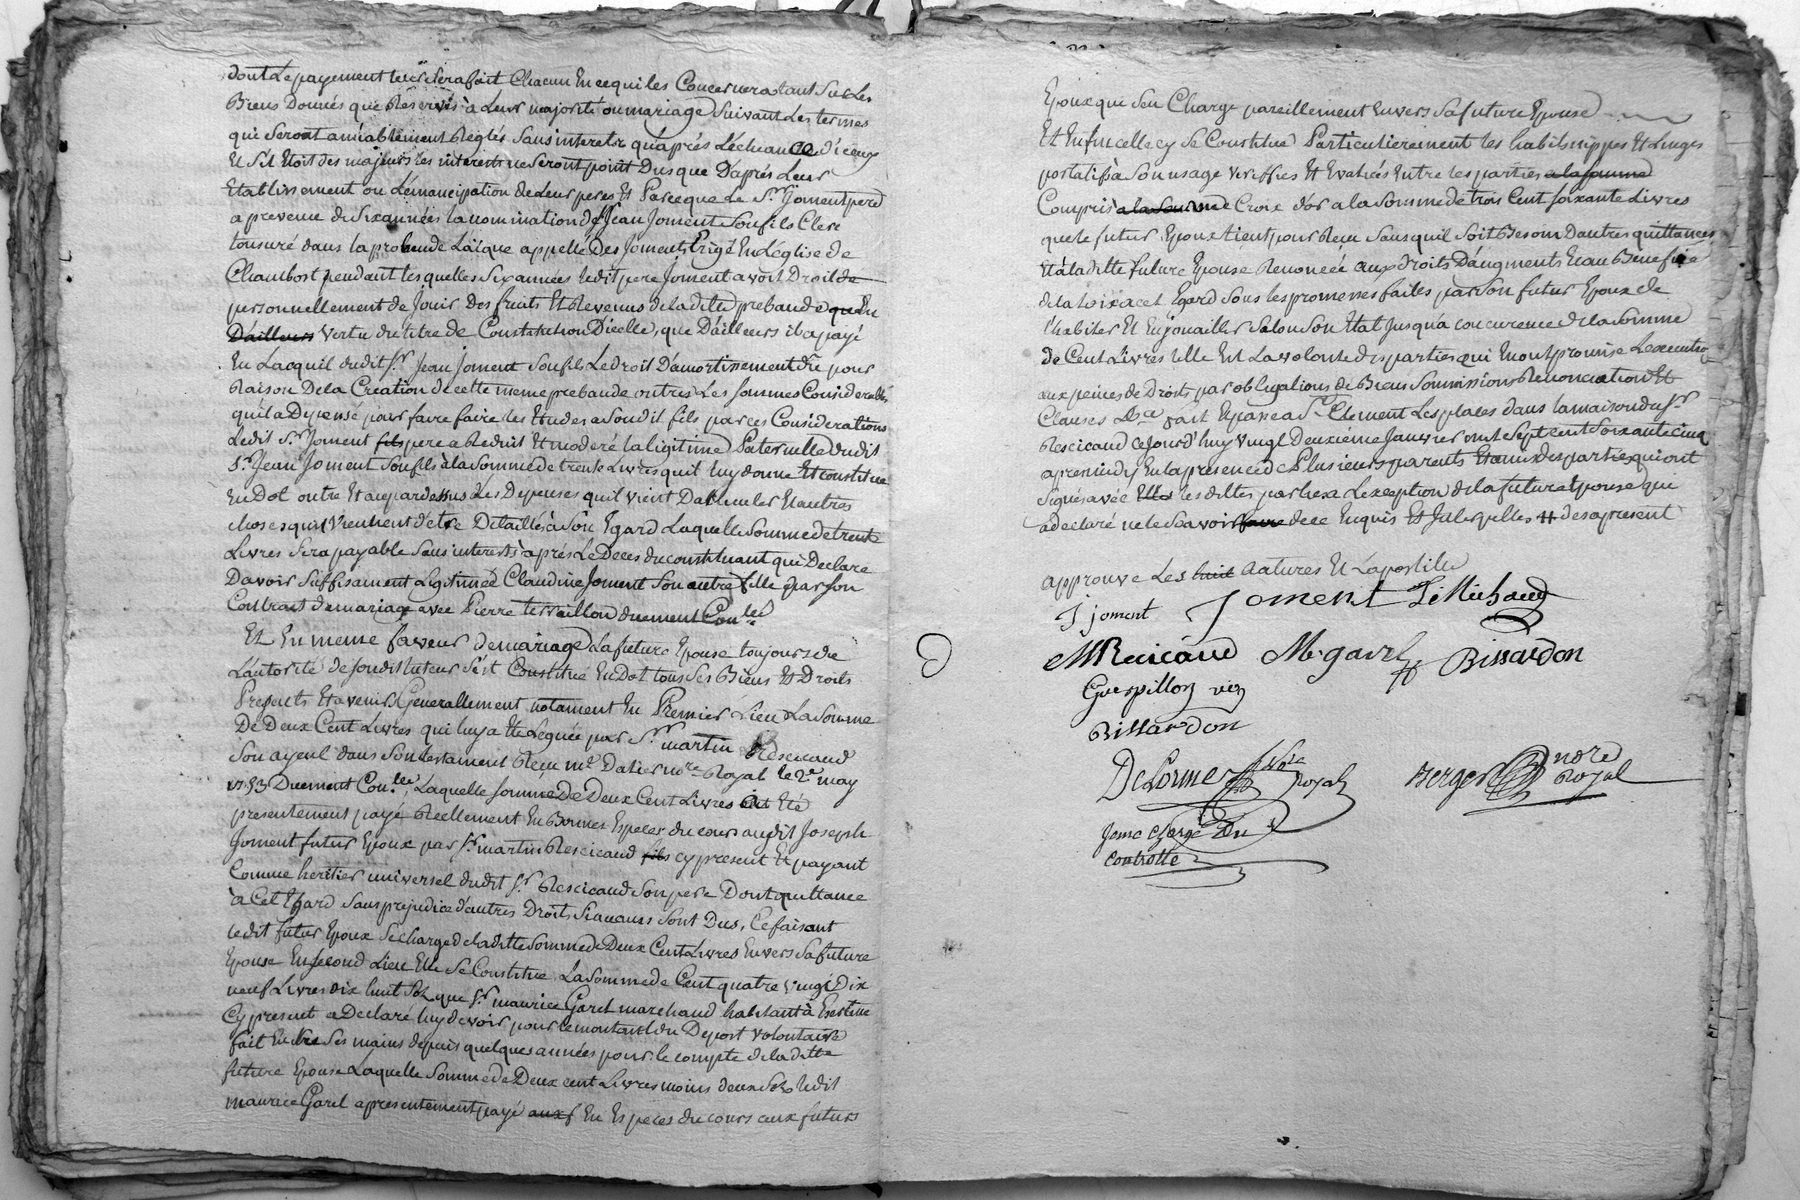 dont Le payement leur Sera fait Chacun En ce qui les Concernera tant Sur Les
Biens Donnés que Reservés à Leur majorité ou mariage Suivant Les termes
qui Seront amiablement Reglés Sans interetz qu'aprés L'echeance d'iceux
Et S'il Etoit des majeurs les interests ne Seront point Dus que D'aprés Leur
Etablissement ou L'émancipation de Leur pere, Et Parceque Le Sr. Joment pere
a prevenu de Six années la nomination de Sr Jean Joment Son fils Clerc
tonsuré dans la prebende Laïque appellé Des Joments Erigé En L'église de
Chambost pendant lesquelles Six années ledit pere Joment avoit Droit de
personnellement de Jouir Des fruits Et Revenus de la ditte prebande qu'en
D'ailleurs vertu du titre de Constitution D'icelle, que D'ailleurs il a payé
En L'acquit dudit Sr. Jean Joment Son fils Le droit D'amortissement dû pour
Raison De la Création de cette meme prebande outres Les Sommes Considerables
qu'il a Depensé pour faire faire les Etudes a Son dit fils par ces Considerations
Ledit Sr. Joment fils pere a Reduit Et moderé la légitime Paternelle dudit
Sr. Jean Joment Son fils à la Somme de trente Livres qu'il luy donne Et constitue
En Dot outre Et au pardessus Les Depenses qu'il vient D'articuler Et autres
choses qui Viennent d'être Detaillés à Son Egard Laquelle Somme de trente
Livres Sera payable Sans interests aprés Le Deces du constituant qui Declare
D'avoir Suffisament Légitimée Claudine Joment Son autre fille par Son
Contract de mariage avec Pierre terraillon duement Conlé
Et En meme faveur de mariage La future Epouse toujours de
L'autorité de Son dit tuteur S'est Constitué En Dot tous Ses Biens Et Droits
Presents Et avenirs Generallement notament En Premier Lieu La Somme
De Deux Cent Livres qui luy a Eté Leguée par Sr. martin Rescicaud
Son ayeul dans Son testament Reçu me Dalier nore Royal le 2e may
1753 Duement Conlé, Laquelle Somme De Deux Cent Livres a Eté
presentement payé Reellement En Bonnes Especes du cours audit Joseph
Joment futur Epoux par Sr martin Rescicaud fils cy present Et payant
Comme heritier universel dudit Sr Rescicaud Son pere Dont quittance
à Cet Egard Sans prejudice d'autres Droits Si aucuns Sont Dus, Ce faisant
ledit futur Epoux Se charge de la ditte Somme de Deux Cent Livres Envers Sa future
Epouse En Second Lieu Elle Se Constitue La Somme de Cent quatre vingt Dix
neuf Livres dix huit Sols que Sr maurice Garel marchand habitant à
Cy present a Declaré luy devoir pour le montant du Depost volontaire
fait Entre Ses mains depuis quelques années pour le compte de la ditte
future Epouse Laquelle Somme de Deux cent Livres moins deux Sols ledit
maurice Garel a presentement payé aux f En Especes du cours aux futurs
Epoux que S'en Charge pareillement Envers Sa future Epouse
Et Enfin celle cy Se Constitue Particulierement les habits nippes Et Linges
portatifs à Son usage verifiés Et Evalués Entre les parties a la Somme
Compris a la Somme une Croix d'or a la Somme de trois Cent Soixante Livres
que le futur Epoux tient pour Reçu Sans qu'il Soit Besoin D'autres quittances
Et à la ditte future Epouse Renoncée aux droits D'augments Et au Benefice
de la Loix a cet Egard Sous les promesses faites par Son futur Epoux de
l'habiler Et Enjoualler Selon Son Etat Jusqu'a concurence de la Somme
de Cent Livres telle Est La volonté des parties qui En ont promise L'execution
aux peines de Droits par obligations de Biens Soumissions Renonciation Et
Clauses Dra fait Et passé a St Clement Les places dans la maison du Sr
Rescicaud ce Jourd'huy vingt Deuxieme Janvier mil Sept cent Soixante cinq
apres midy En la presence de Plusieurs parents Et amis des parties qui ont
Signés avec Elles les dittes parties a L'exception de la future Epouse qui
a declaré ne le Scavoir faire de ce Enquis Et Interpellés H des a present
approuvé Les huit ratures Et L'apostille
J joment Joment J Michaud
M Rescicaud M. gavel Bissardon
Guerpillon
Bissardon
De Lorme Nore royal Berger nore Royal
Jeme charge Du
controlle